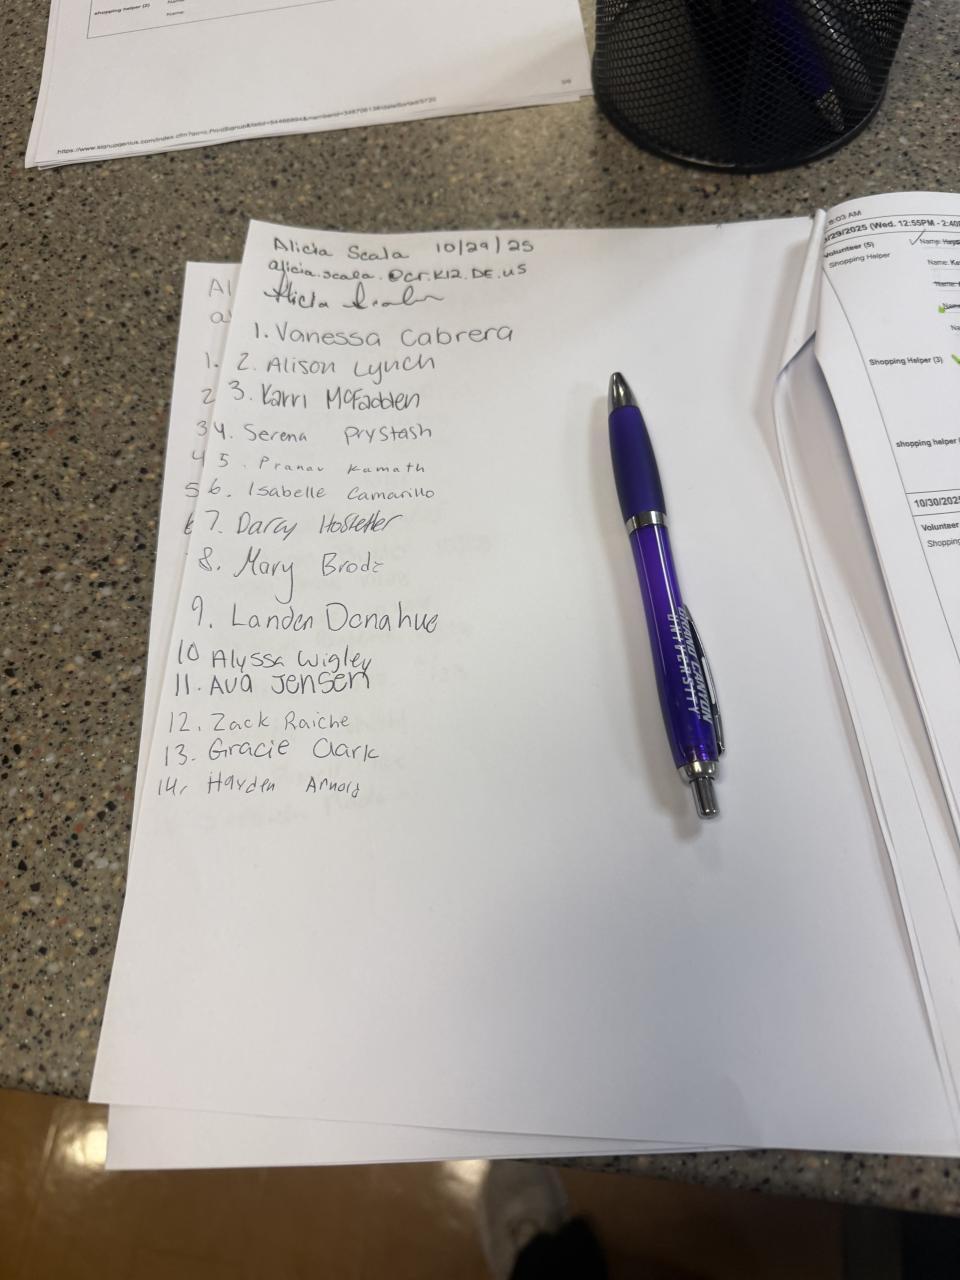 shopping helper (2)
Name:
https://www.signupgenius.com/index.cfm?go=c.PrintSignup&
Alicia Scala 10/29/25
alicia.scala.@cr.K12.DE.US
Alicia Scala
1. Vanessa Cabrera
2. Alison Lynch
3. Karri McFadden
4. Serena Prystash
5. Pranav Kamath
6. Isabelle Camarillo
7. Darcy Hostetler
8. Mary Brode
9. Landen Donahue
10 Alyssa Wigley
11. Ava Jensen
12. Zack Raiche
13. Gracie Clark
14. Hayden Arnold
Al
a
1.
2
3
4
5
6
GRAND CANYON
UNIVERSITY
8:03 AM
/29/2025 (Wed. 12:55PM - 2:40P
Volunteer (5)
Shopping Helper
Name: Hays
Name: Ke
Name:
Na
Shopping Helper (3)
shopping helper
10/30/2025
Volunteer
Shopping